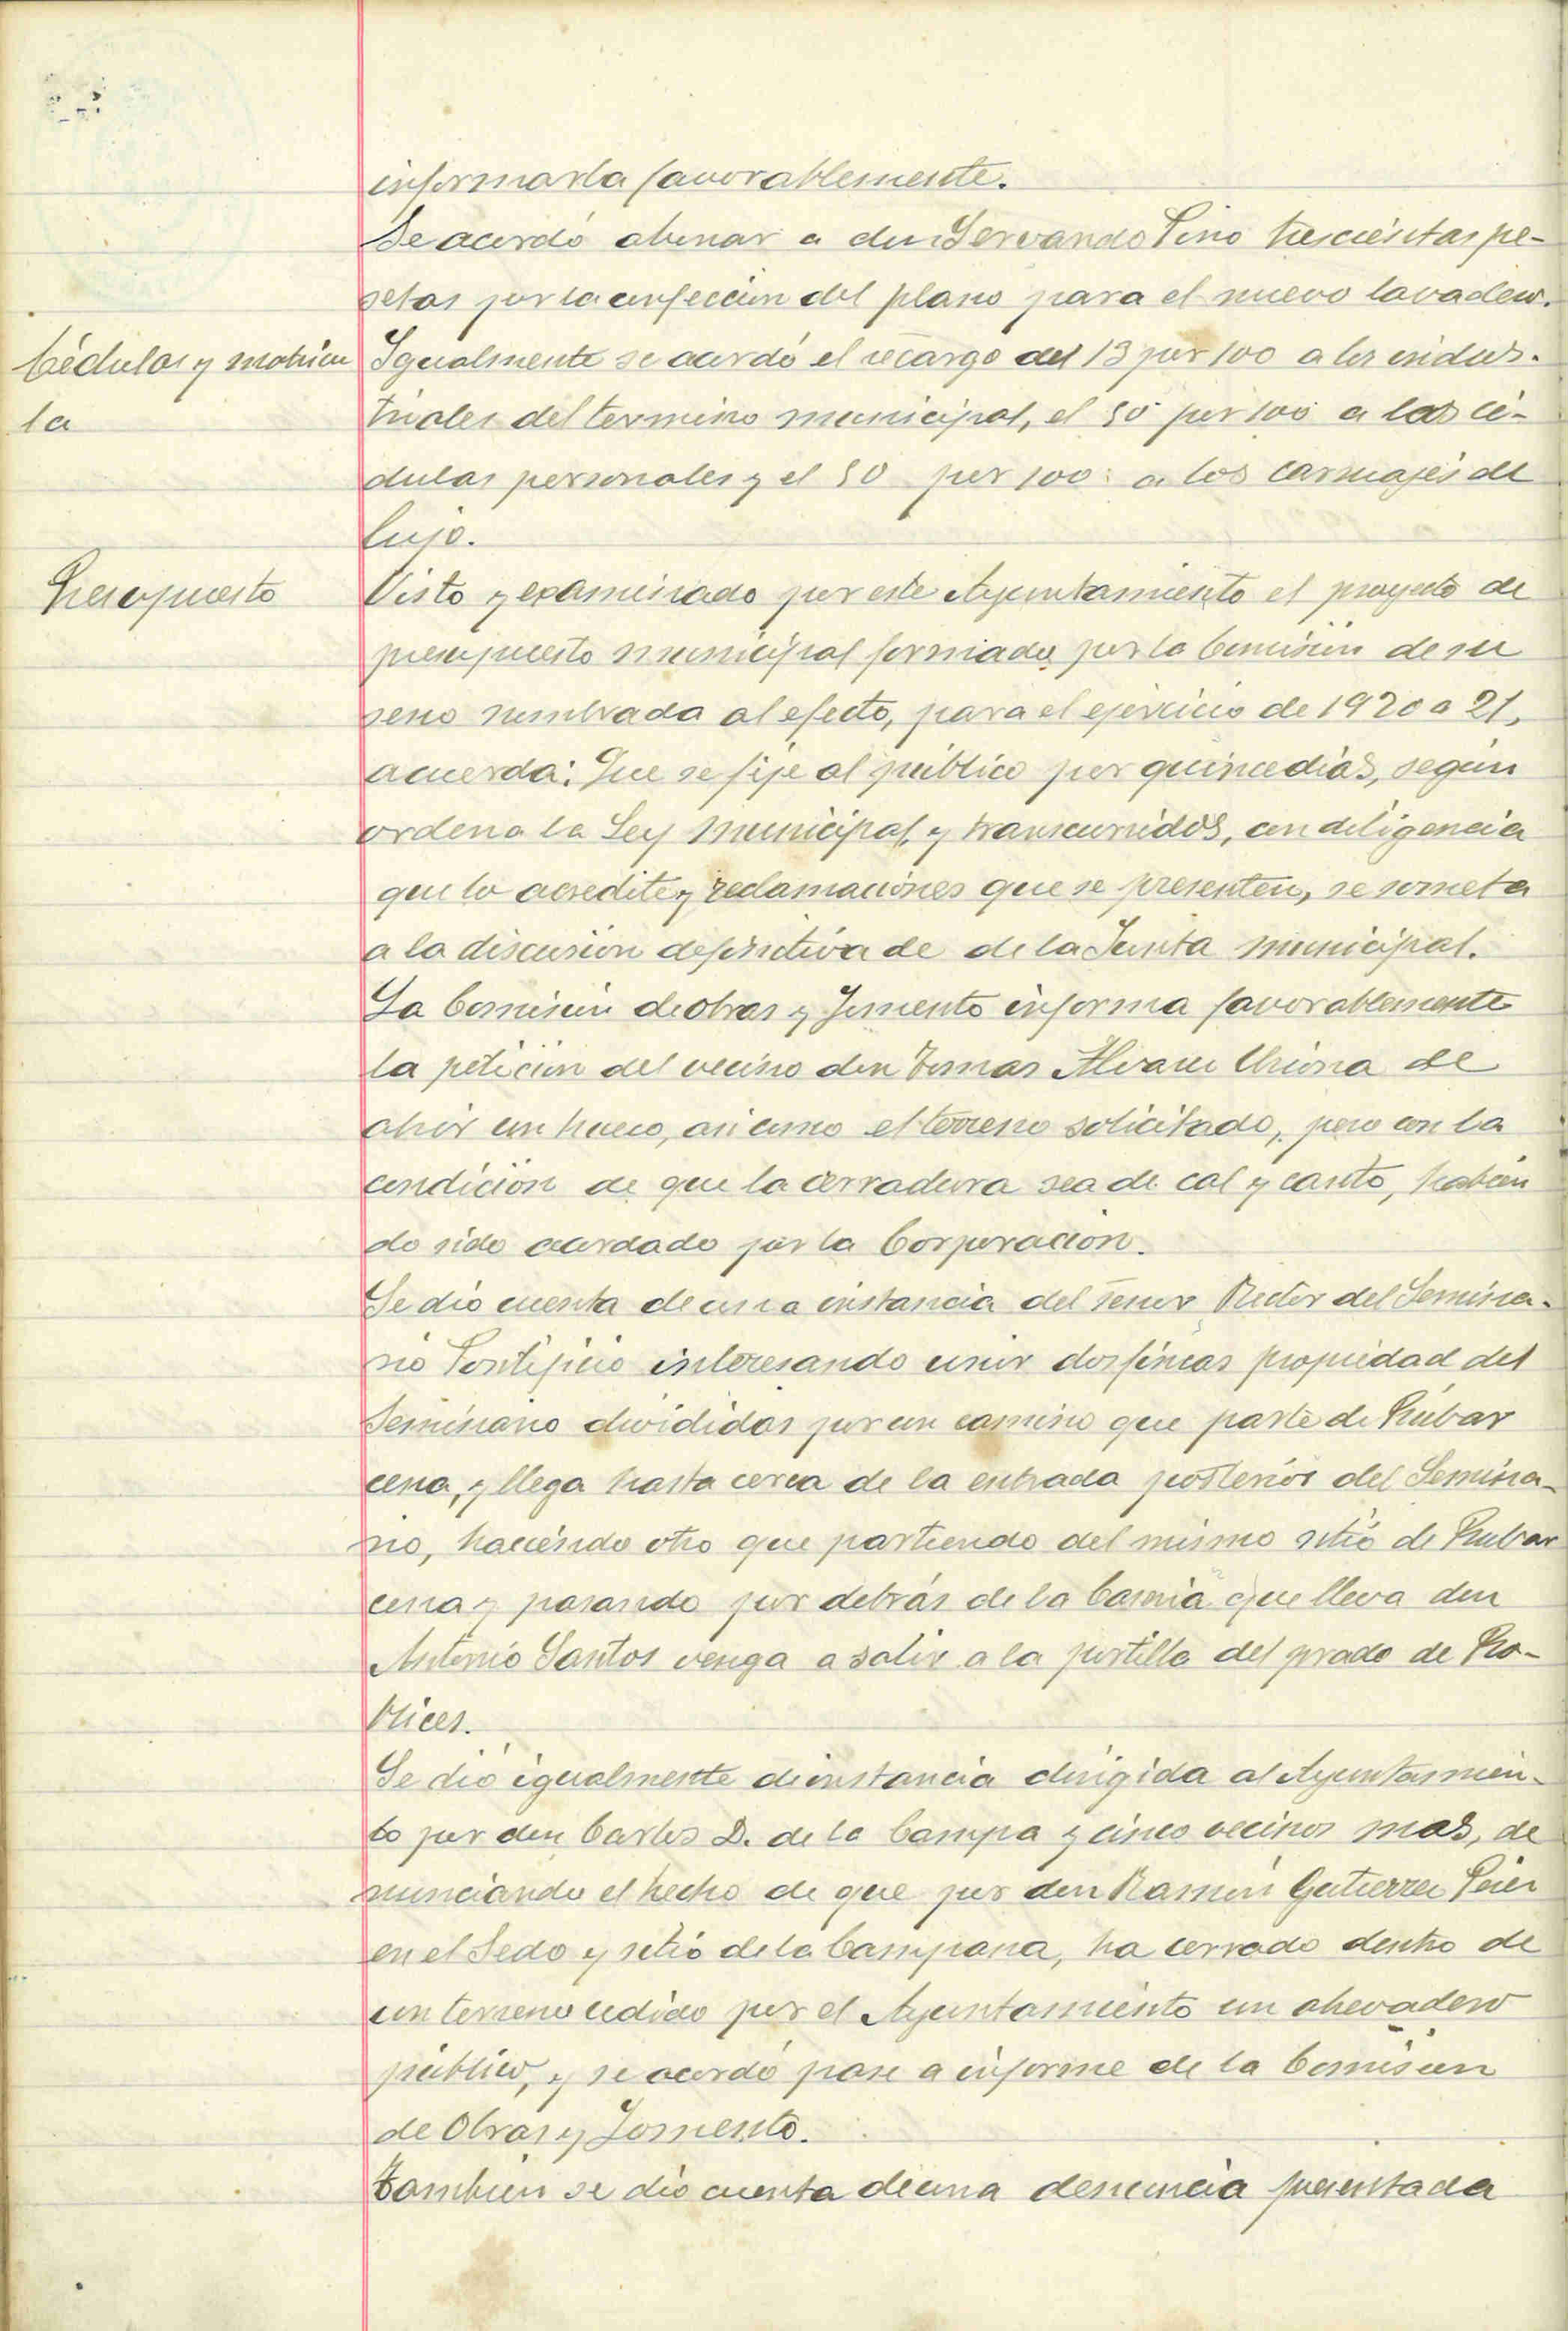 informarla favorablemente.
Se acordó abonar a don Servando Pino trescientas pe-
setas por la confección del plano para el nuevo lavadero.
Cédulas y matricu
la
Igualmente se acordó el recargo del 13 por 100 a los indus-
triales del termino municipal, el 50 por 100 a las cé-
dulas personales y el 50 por 100 a los carruajes de
lujo.
Presupuesto
Visto y examinado por este Ayuntamiento el proyecto de
presupuesto municipal formado por la Comisión de su
seno nombrada al efecto, para el ejercicio de 1920 a 21,
acuerda: Que se fije al público por quince dias, según
ordena la Ley Municipal, y transcurridos, con diligencia
que lo acredite y reclamaciones que se presenten, se someta
a la discusión definitiva de de la Junta municipal.
La Comisión de obras y Fomento informa favorablemente
la petición del vecino don Tomas Alvarez de
abrir un hueco, asi como el terreno solicitado, pero con la
condición de que la cerradura sea de cal y canto, habien
do sido acordado por la Corporación.
Se dio cuenta de una instancia del señor Rector del Semina-
rio Pontificio interesando unir dos fincas propiedad del
Seminario divididas por un camino que parte de Rubar
cena, y llega hasta cerca de la entrada posterior del Semina-
rio, haciendo otro que partiendo del mismo sitio de Rubar
cena y pasando por detrás de la Casería que lleva don
Antonio Santos venga a salir a la portilla del prado de
Se dio igualmente de instancia dirigida al Ayuntamien-
to por don Carlos D. de la Campa y cinco vecinos mas, de
nunciando el hecho de que por don Ramón Gutierrez
en el Sedo y sitio de la Campana, ha cerrado dentro de
un terreno cedido por el Ayuntamiento un abevadero
público, y se acordó pase a informe de la Comisión
de Obras y Fomento.
Tambien se dio cuenta de una denuncia presentada